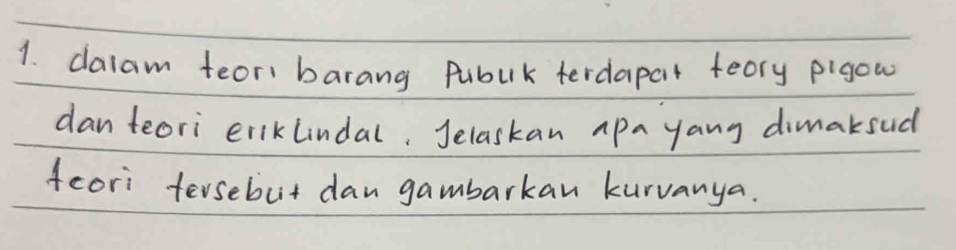 1. dalam teori barang Publik terdapat teory pigow
dan teori erik Lindal. Jelaskan apa yang dimaksud
teori tersebut dan gambarkan kurvanya.